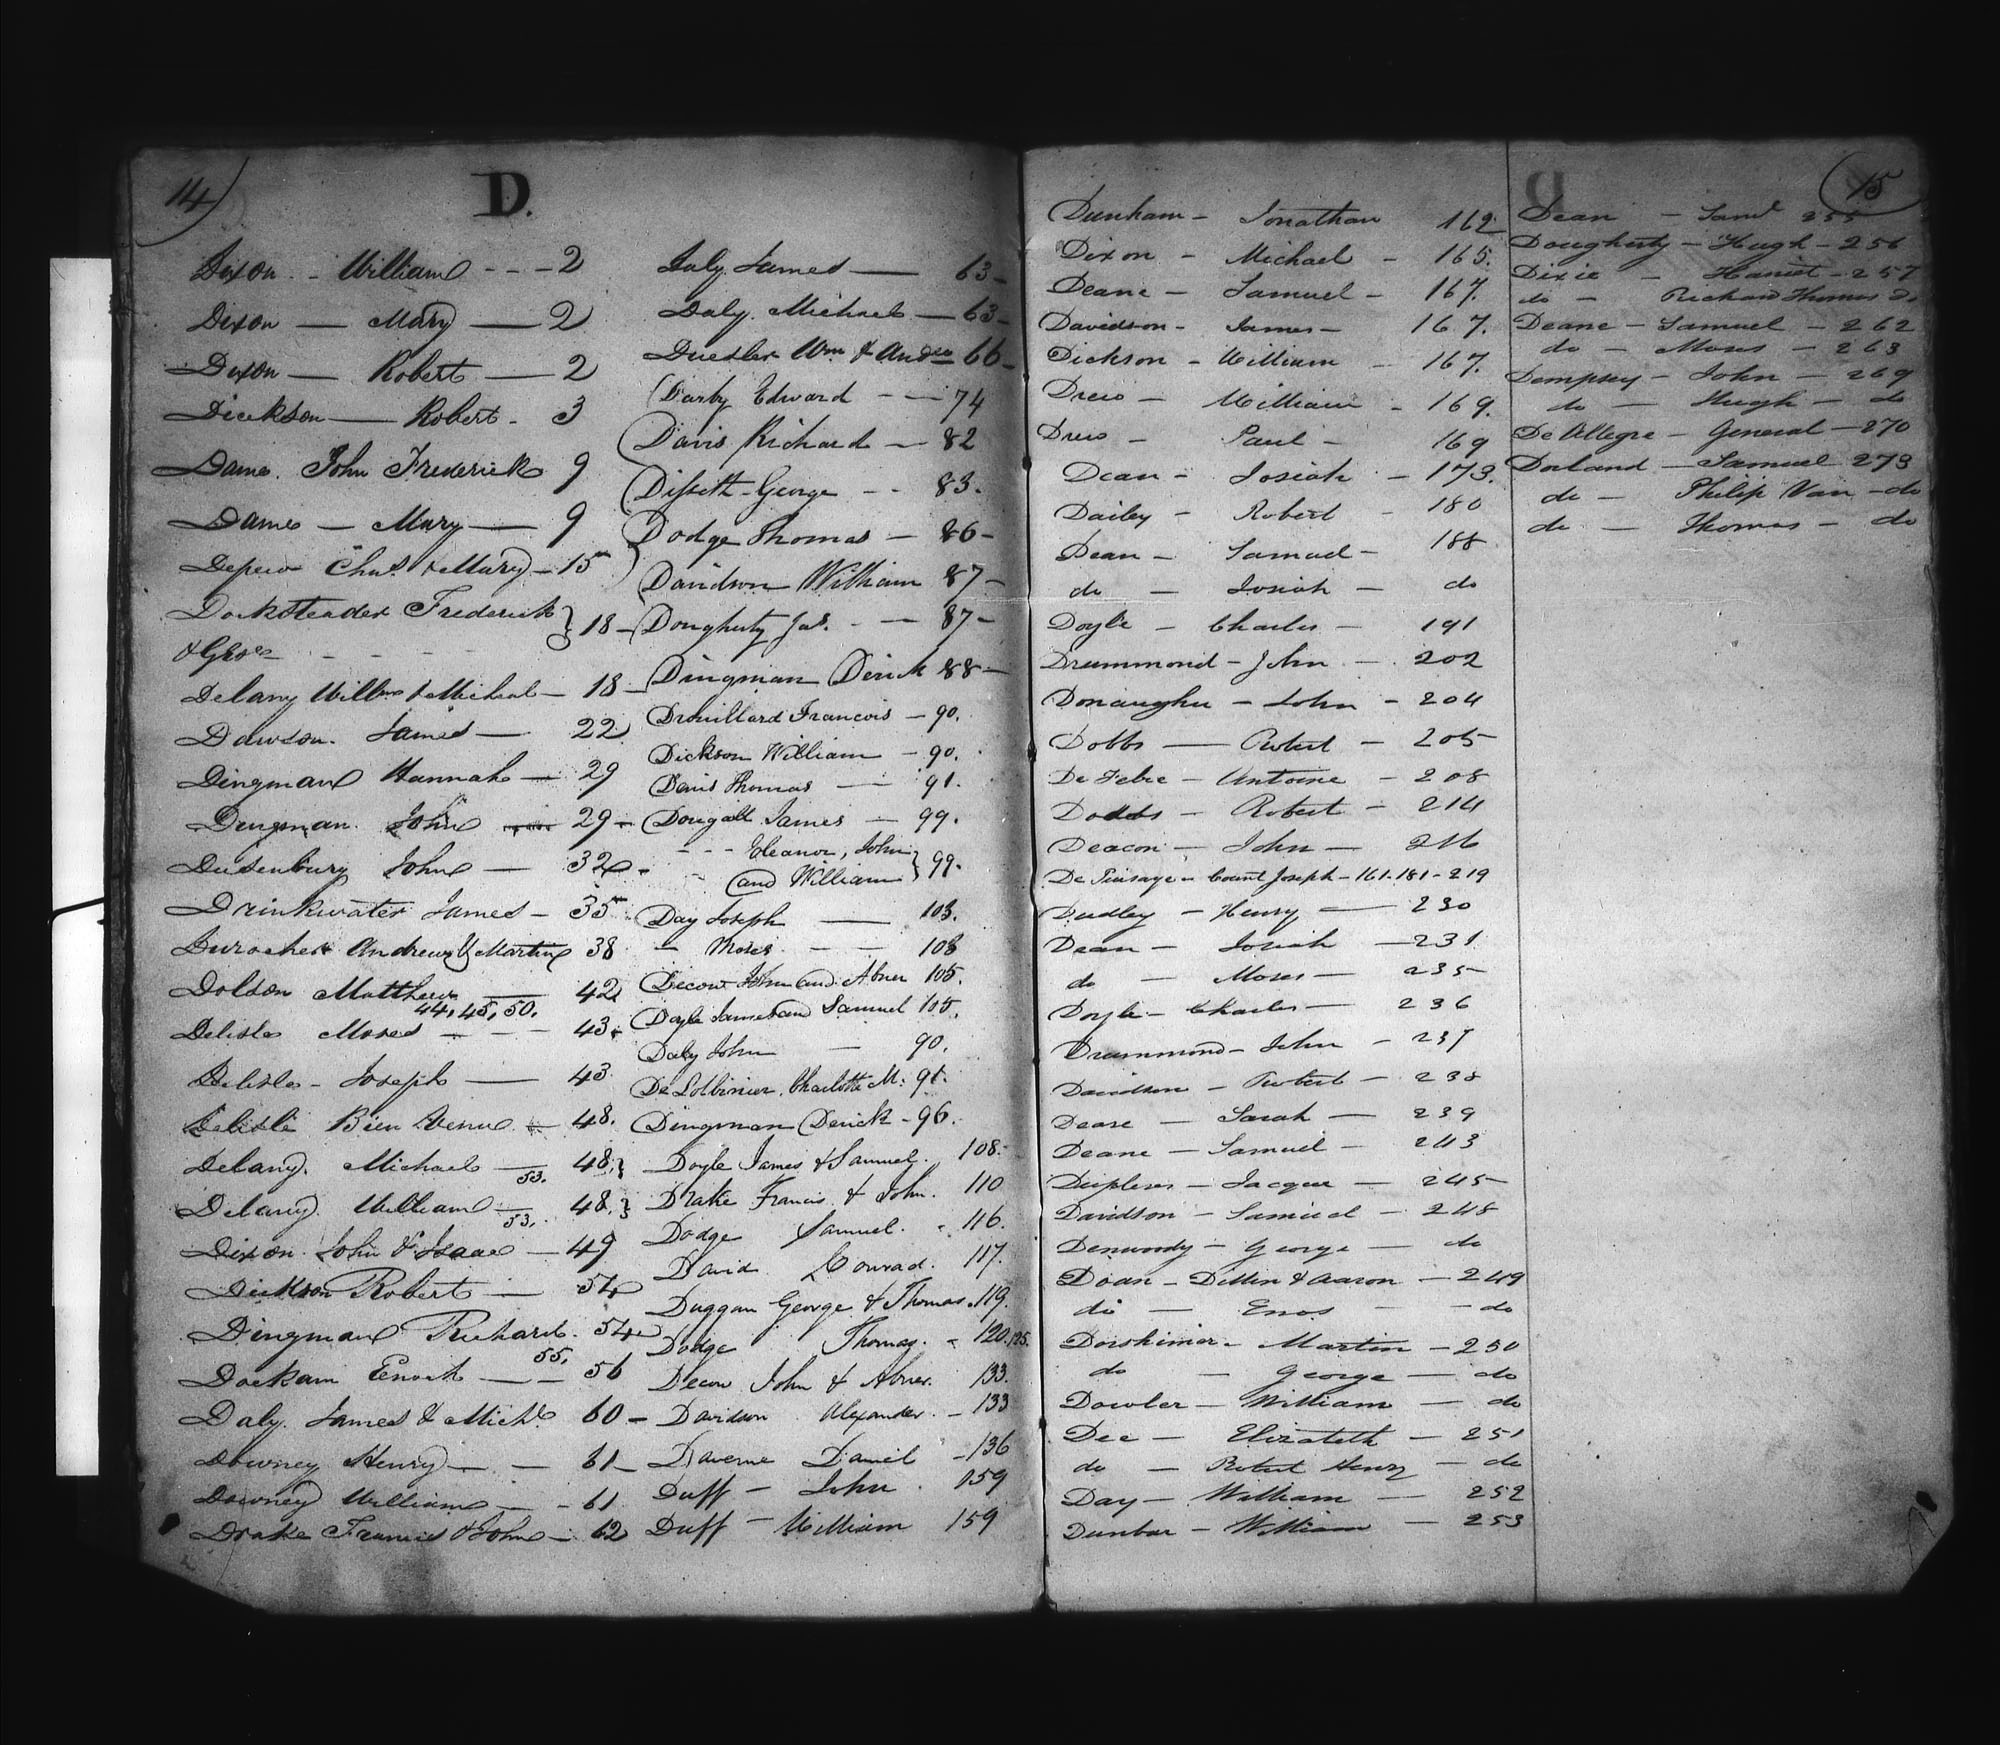 14
D.
Dixon - William - - - 2
Dixon — Mary — 2
Dixon — Robert — 2
Dickson — Robert - 3
Dame. John Frederick 9
Dame — Mary — 9
Depew Chas. & Mary - 15
Docksteader Frederick } 18 -
& Geo.
Delany Willm & Micheal - 18 -
Dawson. James — 22
Dingman Hannah — 29
Dingman. John 29 -
Dusenbury John — 32
Drinkwater James - 35
Durocher Andrew & Martin 38
Dolson Matthew — 42
44, 45, 50.
Delisle Moses - - - 43
Delisle - Joseph — 43
Delisle Bien Venue 48.
Delany. Michael — 48, }
53.
Delany William — 48. }
53.
Dixon. John & Isaac - 49
Dickson Robert — 54
Dingman Richard. 54
55,
Dockam Enoch — - 56
Daly. James & Michl 60 -
Downey Henry - - 61 -
Downey William - - 61
Drake Francis & John - 62
Daly James — 63 -
Daly Michael — 63 -
Duesler Wm & Andw 66 -
Darby Edward - - 74
Davis Richard — 82
Dissett - George - - 83.
Dodge Thomas — 86 -
Davidson William 87 -
Dougherty Jas. - - 87 -
Dingman Derick 88 -
Drouillard Francois - 90.
Dickson William - 90.
Davis Thomas — 91.
Dougall James — 99.
- - - Eleanor, John } 99.
and William
Day Joseph — 103.
- Moses - - 103
Decow John and Abner 105.
Doyle James and Samuel 105.
Daly John — 90.
De Lotbinier, Charlotte M: 91.
Dingman Derick - 96.
Doyle James & Samuel. 108.
Drake Francis & John. 110
Dodge Samuel. - 116.
David Conrad. 117.
Duggan George & Thomas. 119.
Dodge Thomas. - 120. 125.
Decow John & Abner. 133.
Davidson Alexander. - 133
Daverne Daniel - 136
Duff - John. 159
Duff - William 159
15
Dunham - Jonathan 162.
Dixon - Michael - 165.
Deane - Samuel - 167.
Davidson - James - 167.
Dickson - William - 167.
Drew - William - 169.
Drew - Paul - 169
Dean - Josiah - 173.
Dailey - Robert - 180
Dean - Samuel - 188
do - Josiah - do
Doyle - Charles - 191
Drummond - John - 202
Donaughu - John - 204
Dobbs — Robert - 205
De Febre - Antoine - 208
Dodds - Robert - 214
Deacon - John - 216
De Puisaye - Count Joseph - 161. 181 - 219
Dudley - Henry — 230
Dean - Josiah - 231
do - Moses - 235
Doyle - Charles - 236
Drummond - John - 237
Davidson - Robert - 238
Dease - Sarah - 239
Deane - Samuel - 243
Duplesis - Jacque - 245
Davidson - Samuel - 248
Denwoody - George - do
Doan - & Aaron - 249
do - Enos - do
Dorshimer - Martin - 250
do - George - do
Dowler - William - do
Dee - Elizabeth - 251
do - Robert Henry - do
Day - William - 252
Dunbar - William - 253
Dean - Saml 255
Dougherty - Hugh - 256
Dixie - Harriet - 257
do - Richard Thomas do
Deane - Samuel - 262
do - Moses - 263
Dempsey - John - 269
do - Hugh - do
De Allegre - General - 270
Dorland - Samuel 273
do - Philip Van - do
do - Thomas - do